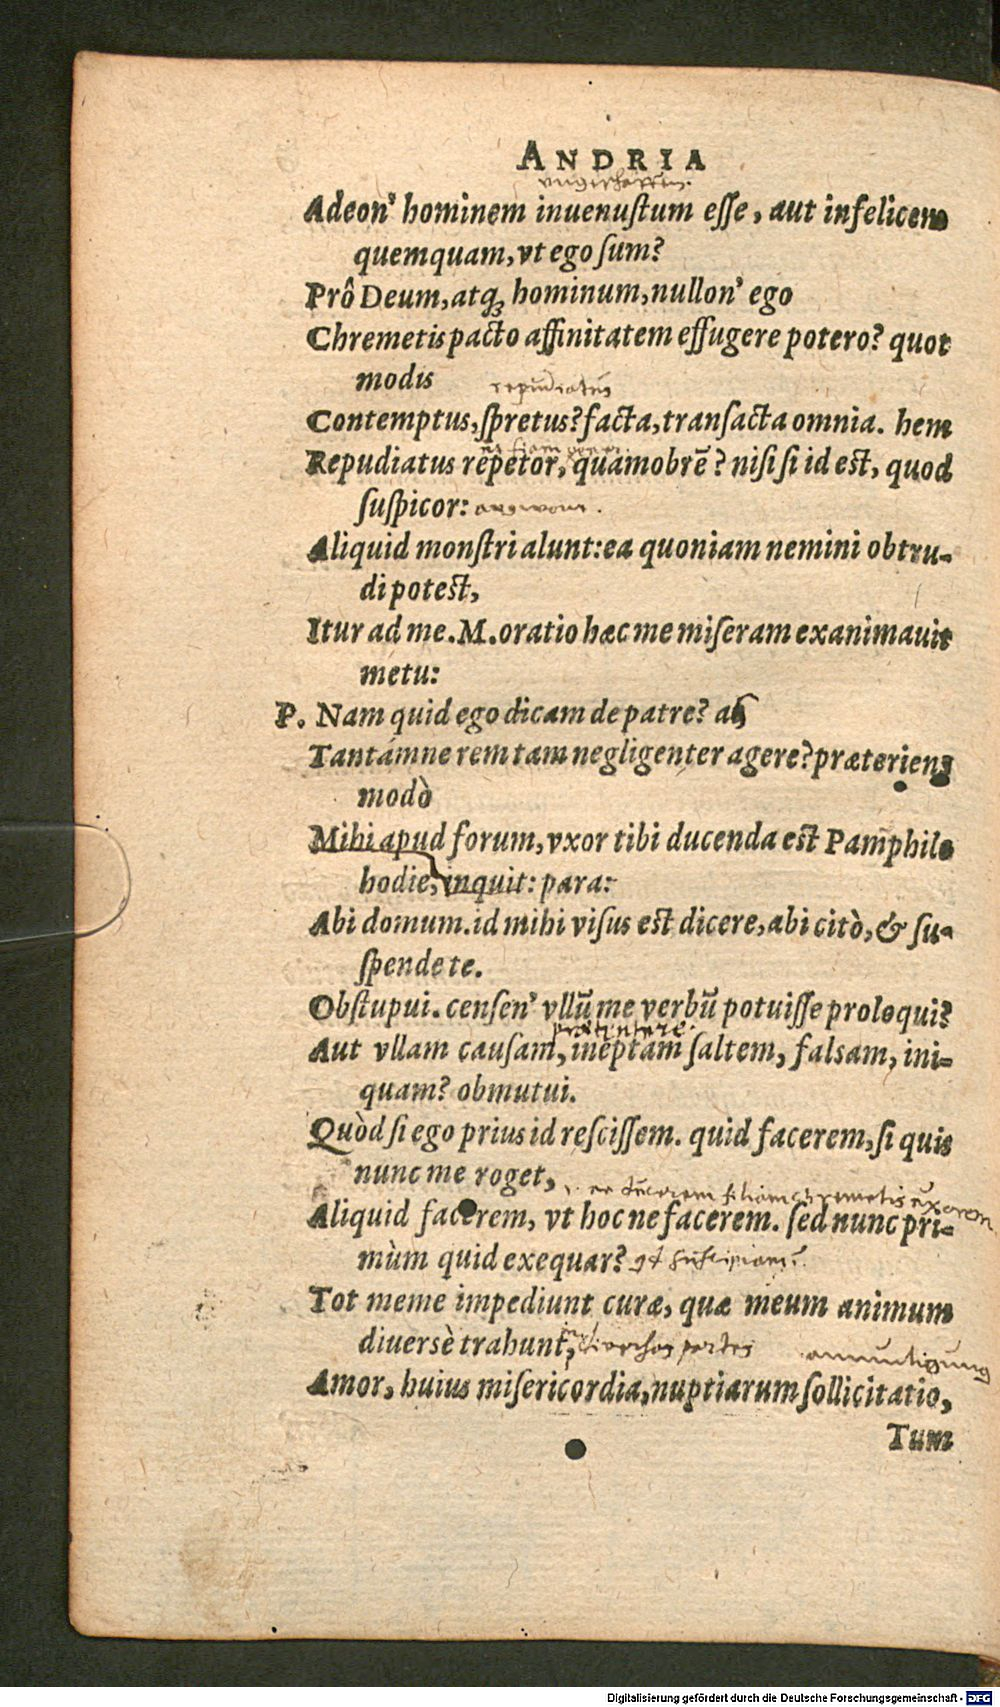 ANDRIA
Adeon' hominem inuenuſtum eſſe, aut infelicem
quemquam, vt ego ſum?
Prô Deum, atq; hominum, nullon' ego
Chremetis pacto affinitatem effugere potero? quot
modis
repudiatus
Contemptus, ſpretus? facta, tranſacta omnia. hem
Repudiatus repetor, quamobrē? niſi ſi id est, quod
ſuſpicor:
Aliquid monſtri alunt: ea quoniam nemini obtru-
di potest,
Itur ad me. M. oratio hæc me miſeram exanimauit
metu:
P. Nam quid ego dicam de patre? ah
Tantámne rem tam negligenter agere? præteriens
modò
Mihi apud forum, vxor tibi ducenda est Pamphile
hodie, inquit: para:
Abi domum. id mihi viſus est dicere, abi citò, & ſu-
ſpende te.
Obſtupui. cenſen' vllū me verbū potuiſſe proloqui?
Aut vllam cauſam, ineptam ſaltem, falsam, ini-
quam? obmutui.
Quòd ſi ego prius id reſciſſem. quid facerem, ſi quis
nunc me roget,
ne ducerem filiam chremetis uxorem
Aliquid facerem, vt hoc ne facerem. ſed nunc pri-
mùm quid exequar? qd suscipiam?
Tot me me impediunt curæ, quæ meum animum
diuersè trahunt, diversas partes
Amor, huius miſericordia, nuptiarum ſollicitatio,
Tum
Digitalisierung gefördert durch die Deutsche Forschungsgemeinschaft - DFG